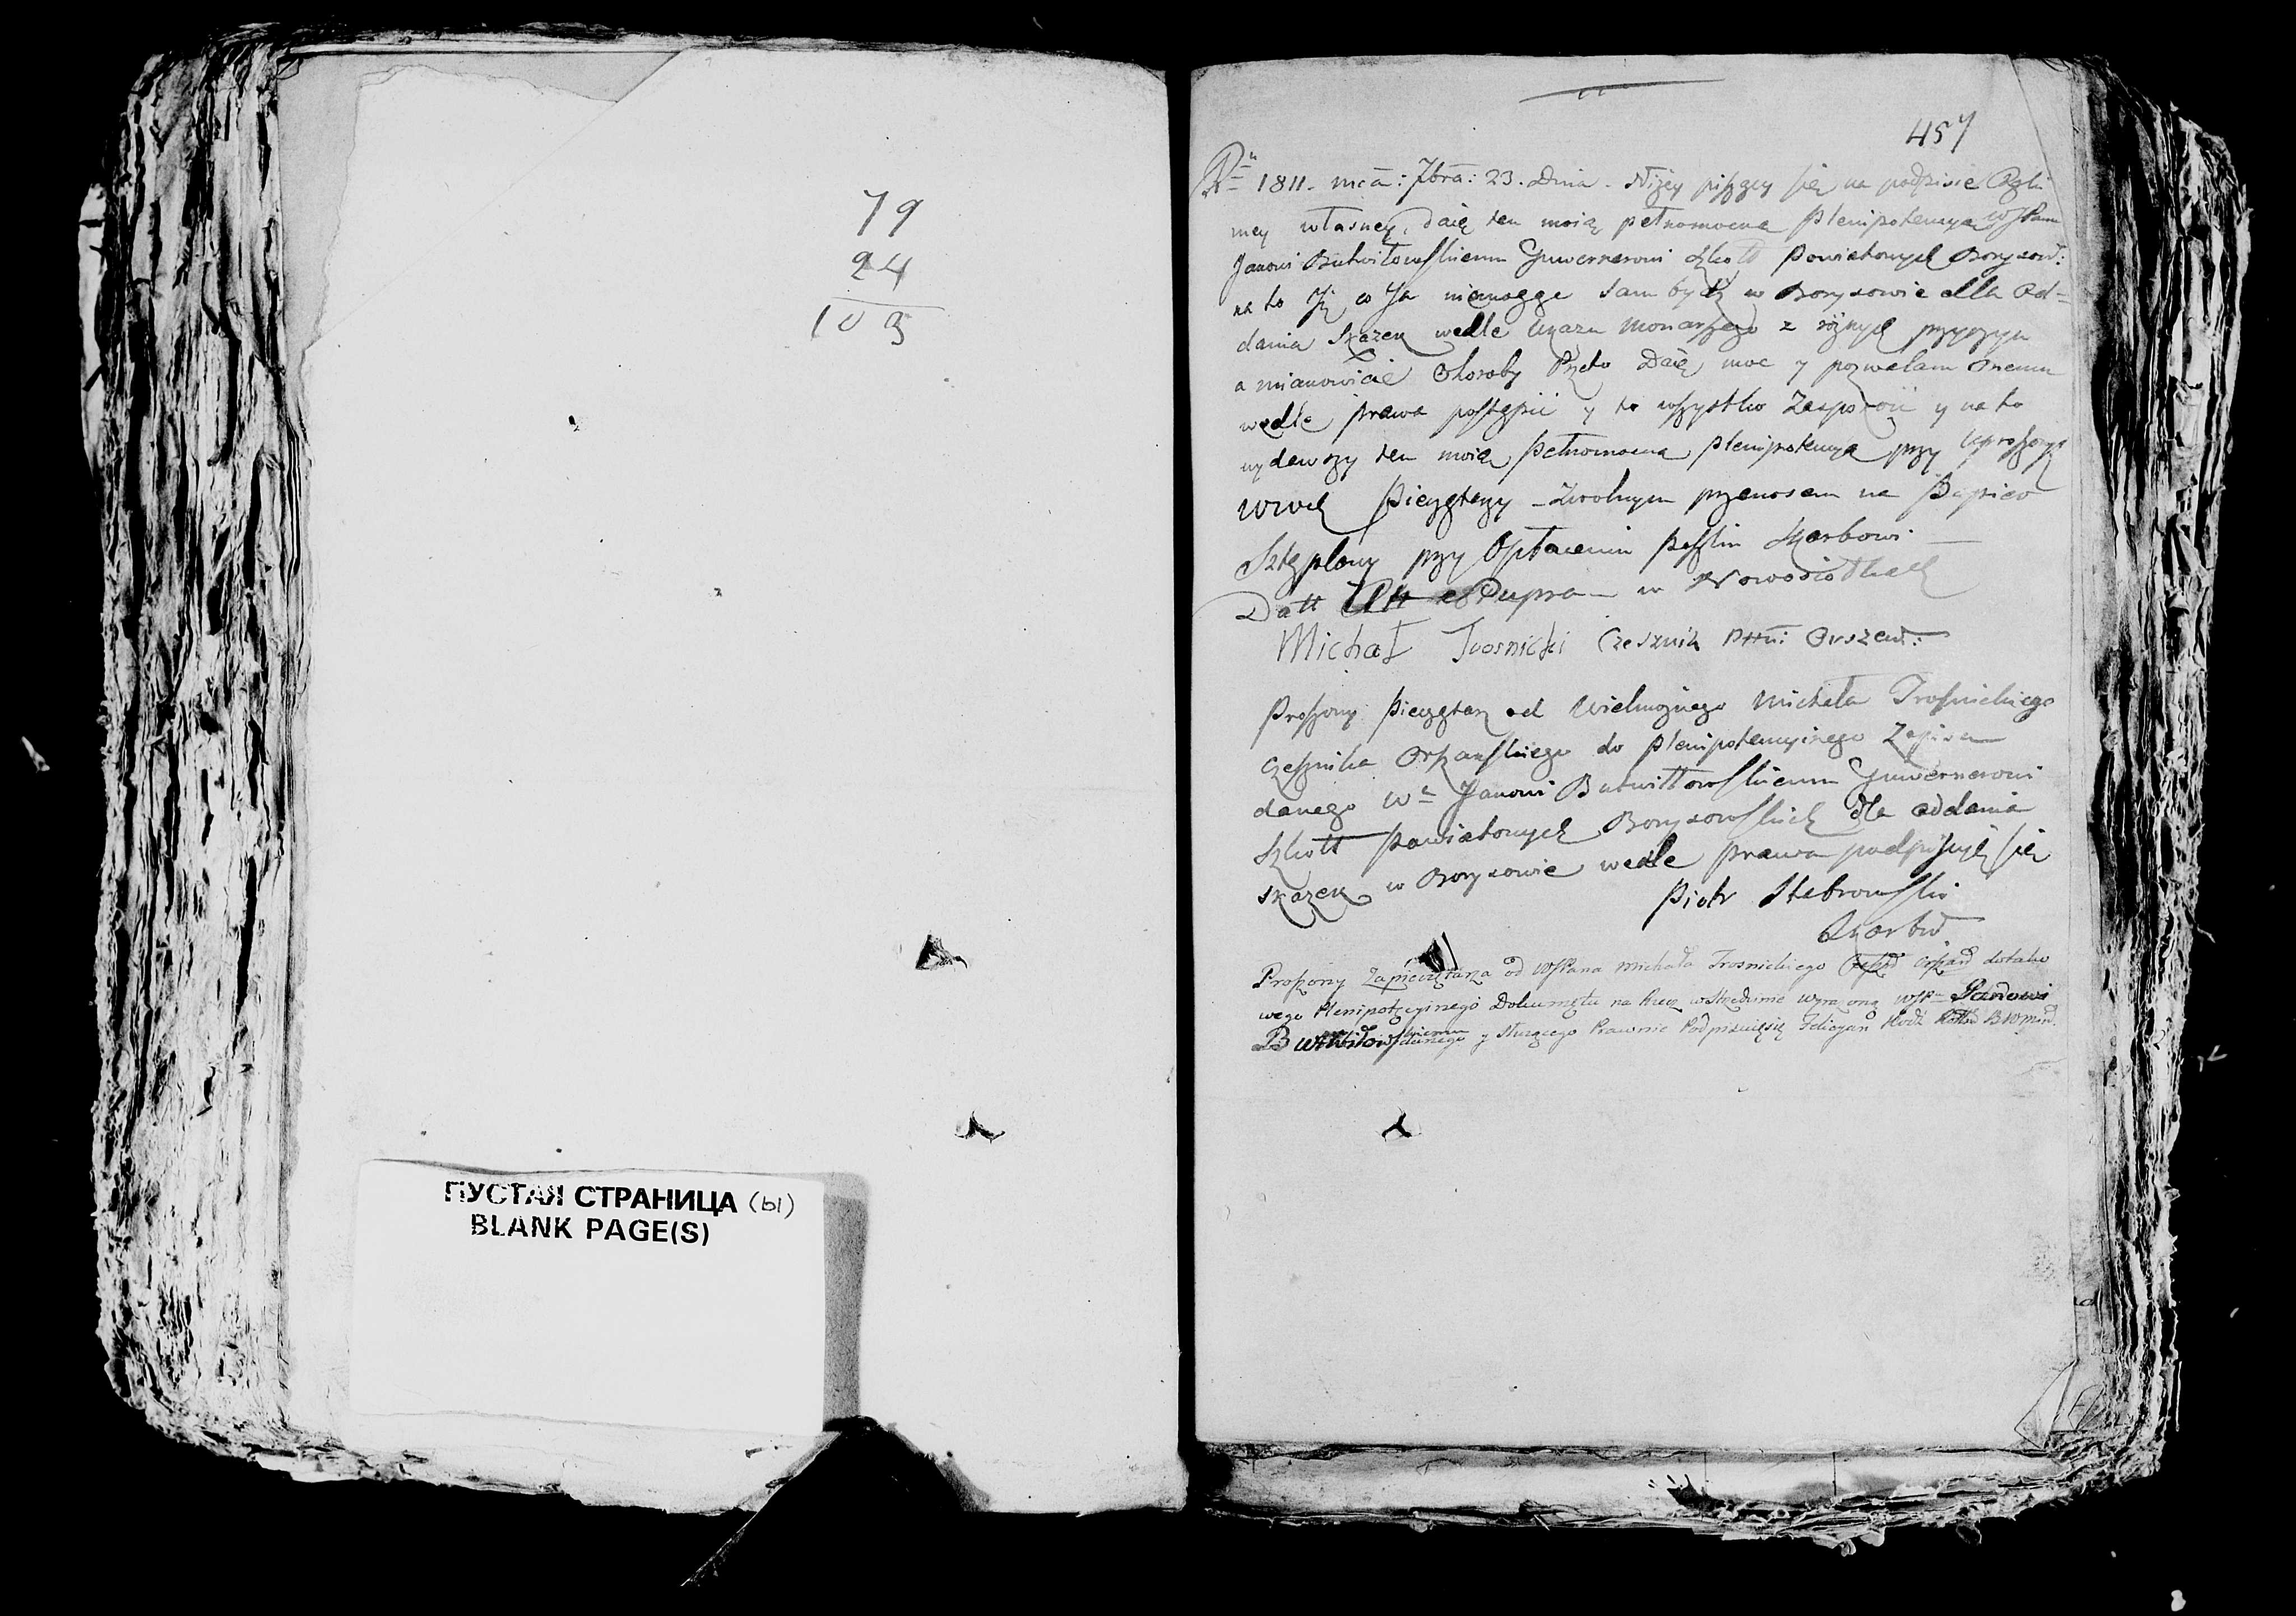 79
24
103
ПУСТАЯ СТРАНИЦА (ы)
BLANK PAGE(S)
457
Rᵘ 1811. mca: 7bra: 23. Dnia. Niżey piszący się na podpisie Ręki
mey własney, daię ten moią pełnomocną plenipotencyą WJPanu
Janowi Butwiłowskiemu Guwernerowi Szkołł Powiatowych Borysow:
na to Iż co Ja niemogąc sam bydź w Borysowie dla Od=
dania skazek wedle Ukazu Monarszego z różnych przyczyn
a mianowicie Choroby Przeto Daię moc y pozwalam Onemu
wedle prawa postąpić y to wszystko y na to
wydawszy ten moią pełnomocną plenipotencyą przy Uproszonych
WWch Pieczętarzy z wolnym przenosem na Papier
Sztęplowy przy Opłaceniu poszlin Skarbowi
Datt w Nowosiołkach
Michał Trosnicki Cześnik Pttu: Orszań:
Proszony Pieczętarz od Wielmożnego Michała Trosnickiego
Cześnika Orszańskiego do plenipotencyinego Zapisu
danego Wᵘ Janowi Butwiłłowskiemu Guwernerowi
Szkołł Powiatowych Borysowskich dla oddania
skazek w Borysowie wedle prawa podpisuię się
Piotr Stabrowski
Proszony Zapieczętarza od WJPana Michała Trosnickiego Orszań dotako
wego Plenipotęcyinego Dokumętu na Rzecz wśrzedunie wyrażoną WJPᵘ Janowi
Butwiłowskiemu danego y służącego Prawnie Podpisuięsię Felicyan